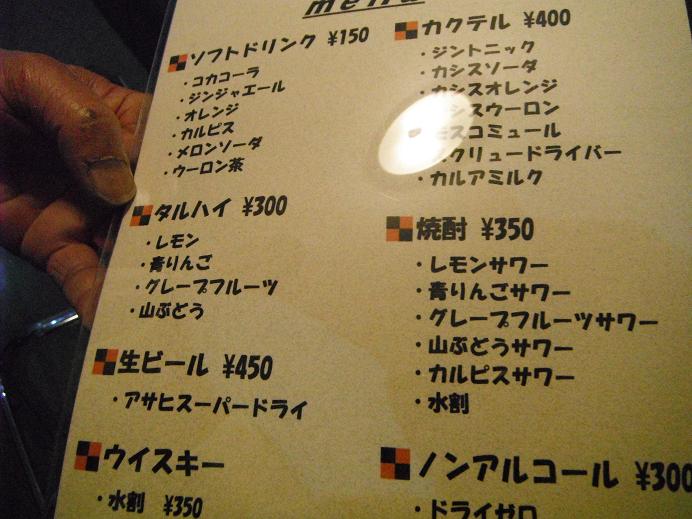 menu
ソフトドリンク ¥150
・コカコーラ
・ジンジャエール
・オレンジ
・カルピス
・メロンソーダ
・ウーロン茶
タルハイ ¥300
・レモン
・青りんご
・グレープフルーツ
・山ぶどう
生ビール ¥450
・アサヒスーパードライ
ウイスキー
・水割 ¥350
カクテル ¥400
・ジントニック
・カシスソーダ
・カシスオレンジ
カシスウーロン
モスコミュール
スクリュードライバー
・カルアミルク
焼酎 ¥350
・レモンサワー
・青りんごサワー
・グレープフルーツサワー
・山ぶどうサワー
・カルピスサワー
・水割
ノンアルコール ¥300
・ドライゼロ